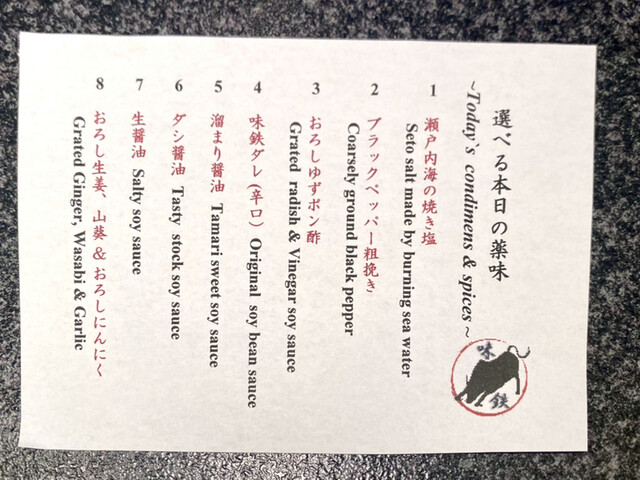 選べる本日の薬味
~Today`s condimens & spices~
味
鉄
1 瀬戸内海の焼き塩
Seto salt made by burning sea water
2 ブラックペッパー粗挽き
Coarsely ground black pepper
3 おろしゆずポン酢
Grated radish & Vinegar soy sauce
4 味鉄ダレ(辛口) Original soy bean sauce
5 溜まり醤油 Tamari sweet soy sauce
6 ダシ醤油 Tasty stock soy sauce
7 生醤油 Salty soy sauce
8 おろし生姜、山葵&おろしにんにく
Grated Ginger, Wasabi & Garlic